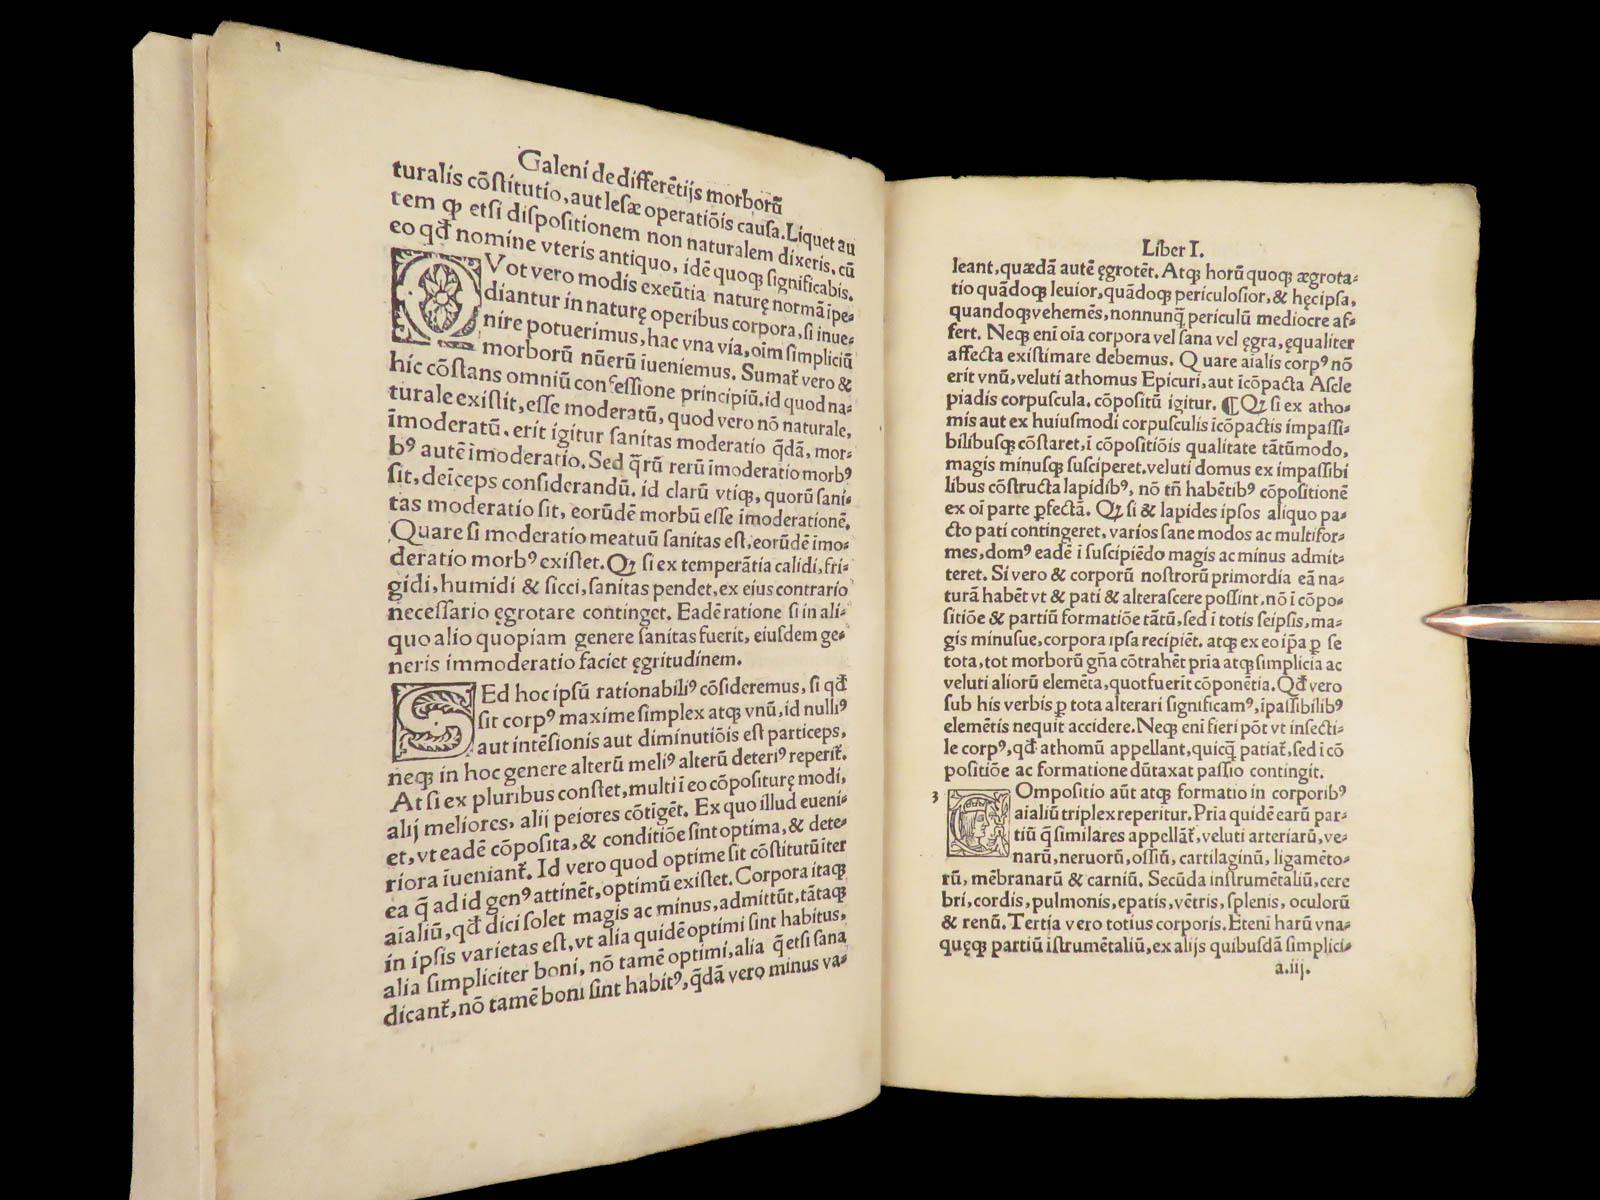 Galeni de differētijs morborū
turalis cōstitutio, aut lesæ operatiōis causa. Liquet au
tem ꝙ etsi dispositionem non naturalem dixeris, cū
eo qđ nomine vteris antiquo, idē quoqꝫ significabis.
QVot vero modis exeūtia naturę normā ipe-
diantur in naturę operibus corpora, si inue-
nire potuerimus, hac vna via, oim simpliciū
morborū nūerū iueniemus. Sumat᷑ vero &
hic cōstans omniū confessione principiū. id quod na-
turale existit, esse moderatū, quod vero nō naturale,
īmoderatū. erit igitur sanitas moderatio q̄dā, mor-
bꝰ autē imoderatio. Sed q̄rū rerū īmoderatio morbꝰ
sit, deīceps considerandū. id clarū vtiqꝫ, quorū sani-
tas moderatio sit, eorūdē morbū esse īmoderationē.
Quare si moderatio meatuū sanitas est, eorūdē imo-
deratio morbꝰ existet. Qꝫ si ex temperātia calidi, fri-
gidi, humidi & sicci, sanitas pendet, ex eius contrario
necessario ęgrotare continget. Eadē ratione si in ali-
quo alio quopiam genere sanitas fuerit, eiusdem ge-
neris immoderatio faciet ęgritudinem.
SEd hoc ipsū rationabiliꝰ cōsideremus, si qđ
sit corpꝰ maxime simplex atqꝫ vnū, id nulliꝰ
aut intēsionis aut diminutiōis est particeps,
neqꝫ in hoc genere alterū meliꝰ alterū deteriꝰ reperit᷑.
At si ex pluribus constet, multi ī eo cōposituræ modi,
alij meliores, alij peiores cōtigēt. Ex quo illud eueni-
et, vt eadē cōposita, & conditiōe sint optima, & dete-
riora īueniant᷑. Id vero quod optime sit cōstitutū iter
ea q̄ ad id genꝰ attinēt, optimū existet. Corpora itaqꝫ
aīaliū, qđ dici solet magis ac minus, admittūt, tātaqꝫ
in ipsis varietas est, vt alia quidē optimi sint habitus,
alia simpliciter boni, nō tamē optimi, alia q̄ etsi sana
dicant᷑, nō tamē boni sint habitꝰ, q̄dā vero minus va-
Liber I.
leant, quædā autē ęgrotēt. Atqꝫ horū quoqꝫ ægrota-
tio quādoqꝫ leuior, quādoqꝫ periculosior, & hęc ipsa,
quandoqꝫ vehemēs, nonnunq̄ periculū mediocre af-
fert. Neqꝫ eni oīa corpora vel sana vel ęgra, ęqualiter
affecta existimare debemus. Quare aialis corpꝰ nō
erit vnū, veluti athomus Epicuri, aut īcōpacta Ascle
piadis corpuscula. cōpositū igitur. ¶ Qꝫ si ex atho-
mis aut ex huiusmodi corpusculis icōpactis impassi-
bilibusqꝫ cōstaret, ī cōpositiōis qualitate tātūmodo,
magis minusqꝫ susciperet. veluti domus ex impassibi
libus cōstructa lapidibꝰ, nō tñ habētibꝰ cōpositionē
ex oī parte ꝑfectā. Qꝫ si & lapides ipsos aliquo pa-
cto pati contingeret, varios sane modos ac multifor-
mes, domꝰ eadē i suscipiēdo magis ac minus admit-
teret. Si vero & corporū nostrorū primordia eā na-
turā habēt vt & pati & alterascere possint, nō ī cōpo-
sitiōe & partiū formatiōe tātū, sed i totis seipsis, ma-
gis minusue, corpora ipsa recipiēt. atqꝫ ex eo ip̄a ꝑ se
tota, tot morborū gn̄a cōtrahēt pria atqꝫ simplicia ac
veluti aliorū elemēta, quot fuerit cōponētia. Qđ vero
sub his verbis ꝑ tota alterari significamꝰ, ipassibilibꝰ
elemētis nequit accidere. Neqꝫ eni fieri pōt vt insecti-
le corpꝰ, qđ athomū appellant, quicq̄ patiat᷑, sed i cō
positiōe ac formatione dūtaxat passio contingit.
3
COmpositio aūt atqꝫ formatio in corporibꝰ
aialiū triplex reperitur. Pria quidē earū par-
tiū q̄ similares appellāt᷑, veluti arteriarū, ve-
narū, neruorū, ossiū, cartilaginū, ligamēto-
rū, mēbranarū & carniū. Secūda instrumētaliū, cere
bri, cordis, pulmonis, epatis, vētris, splenis, oculorū
& renū. Tertia vero totius corporis. Eteni harū vna-
quęqꝫ partiū istrumētaliū, ex alijs quibusdā simplici-
a.iij.